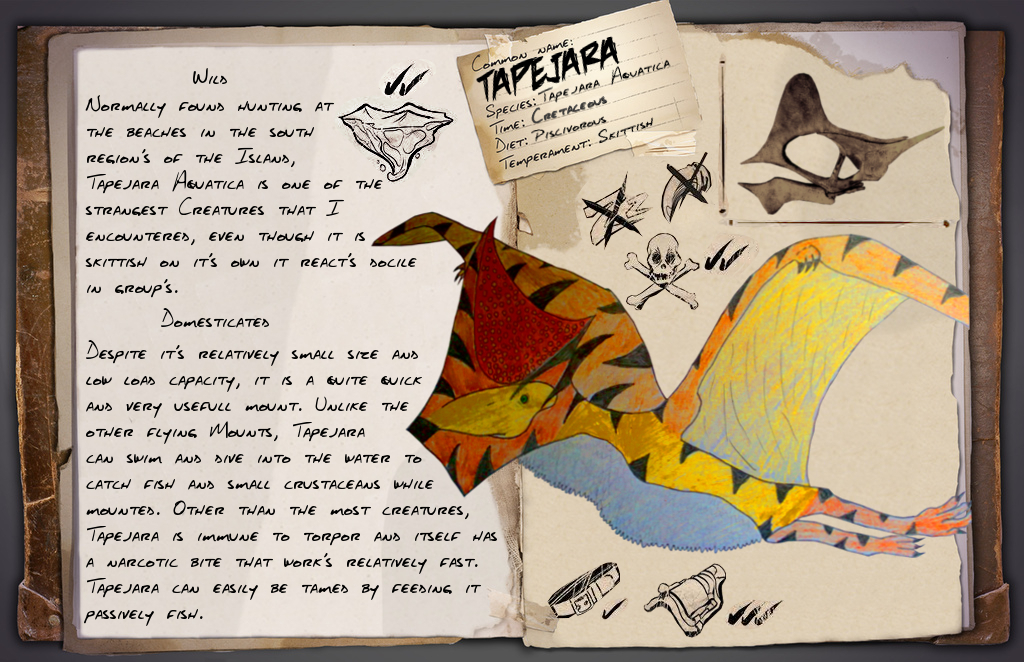 Wild
Normally found hunting at
the beaches in the south
region's of the Island,
Tapejara Aquatica is one of the
strangest Creatures that I
encountered, even though it is
skittish on it's own it react's docile
in group's.
Domesticated
Despite it's relatively small size and
low load capacity, it is a quite quick
and very usefull mount. Unlike the
other flying Mounts, Tapejara
can swim and dive into the water to
catch fish and small crustaceans while
mounted. Other than the most creatures,
Tapejara is immune to torpor and itself has
a narcotic bite that work's relatively fast.
Tapejara can easily be tamed by feeding it
passively fish.
Common name:
TAPEJARA
Species: Tapejara Aquatica
Time: Cretaceous
Diet: Piscivorous
Temperament: Skittish